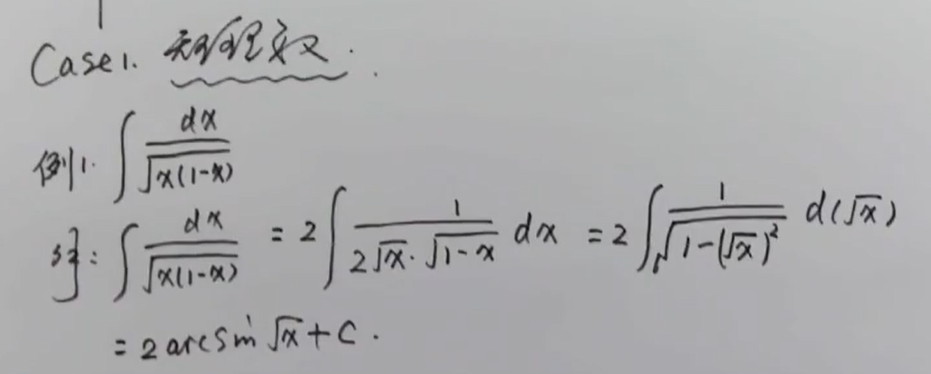 Case1. 无理函数.
例1. ∫ dx/√(x(1-x))
解: ∫ dx/√(x(1-x)) = 2∫ 1/(2√x·√(1-x)) dx = 2∫ 1/√(1-(√x)²) d(√x)
= 2 arcsin √x + C.